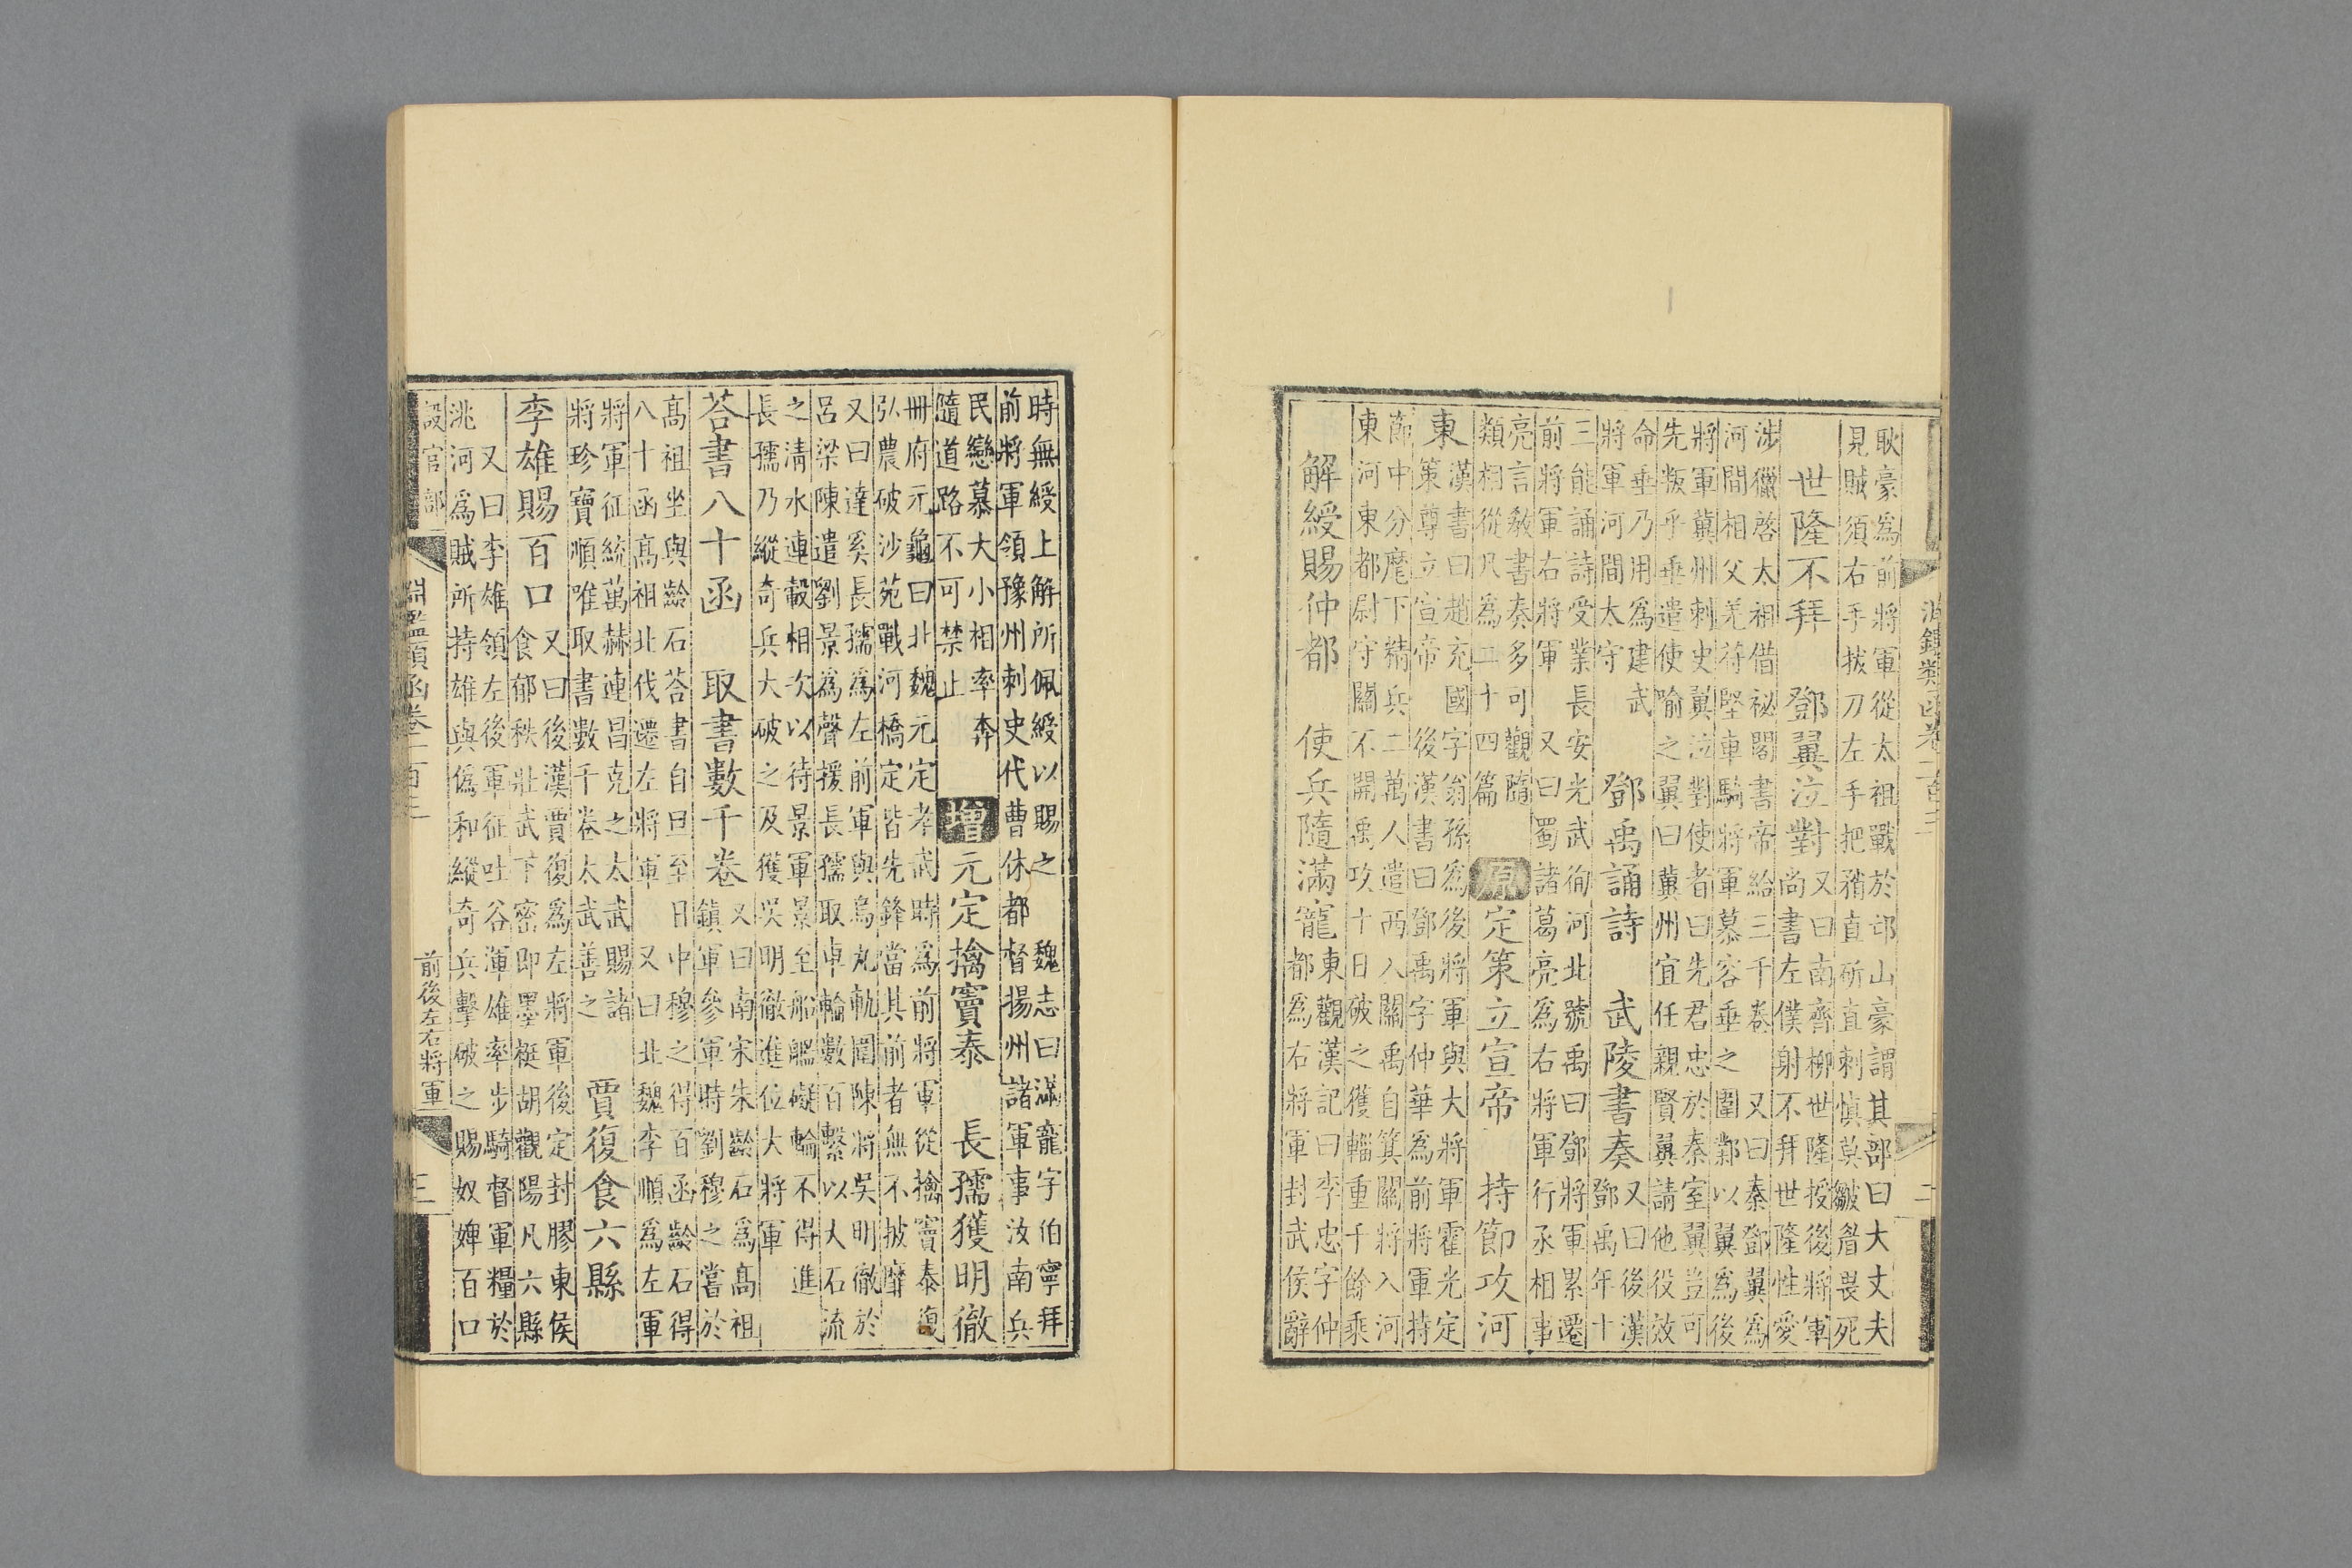 淵鑑類函卷二百三 二
耿豪爲前將軍從太祖戰於邙山豪謂其部曰大丈夫
見賊須右手拔刀左手把矟直斫直刺慎莫皺眉畏死
世隆不拜 鄧翼泣對
又曰南齊柳世隆授後將軍
尚書左僕射不拜世隆性愛
涉獵啓太祖借祕閣書帝給三千卷 又曰秦鄧翼爲
河間相父羌苻堅車騎將軍慕容垂之圍鄴以翼爲後
將軍冀州刺史翼泣對使者曰先君忠於秦室翼豈可
先叛乎垂遣使喻之翼曰冀州宜任親賢翼請他役效
命垂乃用爲建武
將軍河間太守
鄧禹誦詩 武陵書奏
又曰後漢
鄧禹年十
三能誦詩受業長安光武徇河北號禹曰鄧將軍累遷
前將軍右將軍 又曰蜀諸葛亮爲右將軍行丞相事
亮言教書奏多可觀隨
類相從凡爲二十四篇
原 定策立宣帝 持節攻河
東
漢書曰趙充國字翁孫爲後將軍與大將軍霍光定
策尊立宣帝 後漢書曰鄧禹字仲華爲前將軍持
節中分麾下精兵二萬人遣西入關禹自箕關將入河
東河東都尉守關不開禹攻十日破之獲輜重千餘乘
解綬賜仲都 使兵隨滿寵
東觀漢記曰李忠字仲
都爲右將軍封武侯辭
時無綬上解所佩綬以賜之 魏志曰滿寵字伯寧拜
前將軍領豫州刺史代曹休都督揚州諸軍事汝南兵
民戀慕大小相率奔
隨道路不可禁止
增 元定擒竇泰 長孺獲明徹
冊府元龜曰北魏元定孝武時爲前將軍從擒竇泰復
弘農破沙苑戰河橋定皆先鋒當其前者無不披靡
又曰達奚長孺爲左前軍與烏丸軌圍陳將吳明徹於
呂梁陳遣劉景爲聲援長孺取車輪數百繫以大石流
之清水連轂相次以待景軍景至船艦礙輪不得進
長孺乃縱奇兵大破之及獲吳明徹進位大將軍
荅書八十函 取書數千卷
又曰南宋朱齡石爲高祖
鎮軍參軍時劉穆之嘗於
高祖坐與齡石荅書自旦至日中穆之得百函齡石得
八十函高祖北伐遷左將軍 又曰北魏李順爲左軍
將軍征統萬赫連昌克之太武賜諸
將珍寶順唯取書數千卷太武善之
賈復食六縣
李雄賜百口
又曰後漢賈復爲左將軍後定封膠東侯
食郁秩壯武下密即墨梃胡觀陽凡六縣
又曰李雄領左後軍征吐谷渾雄率步騎督軍糧於
洮河爲賊所持雄與僞和縱奇兵擊破之賜奴婢百口
設官部 淵鑑類函卷二百三 前後左右將軍 三